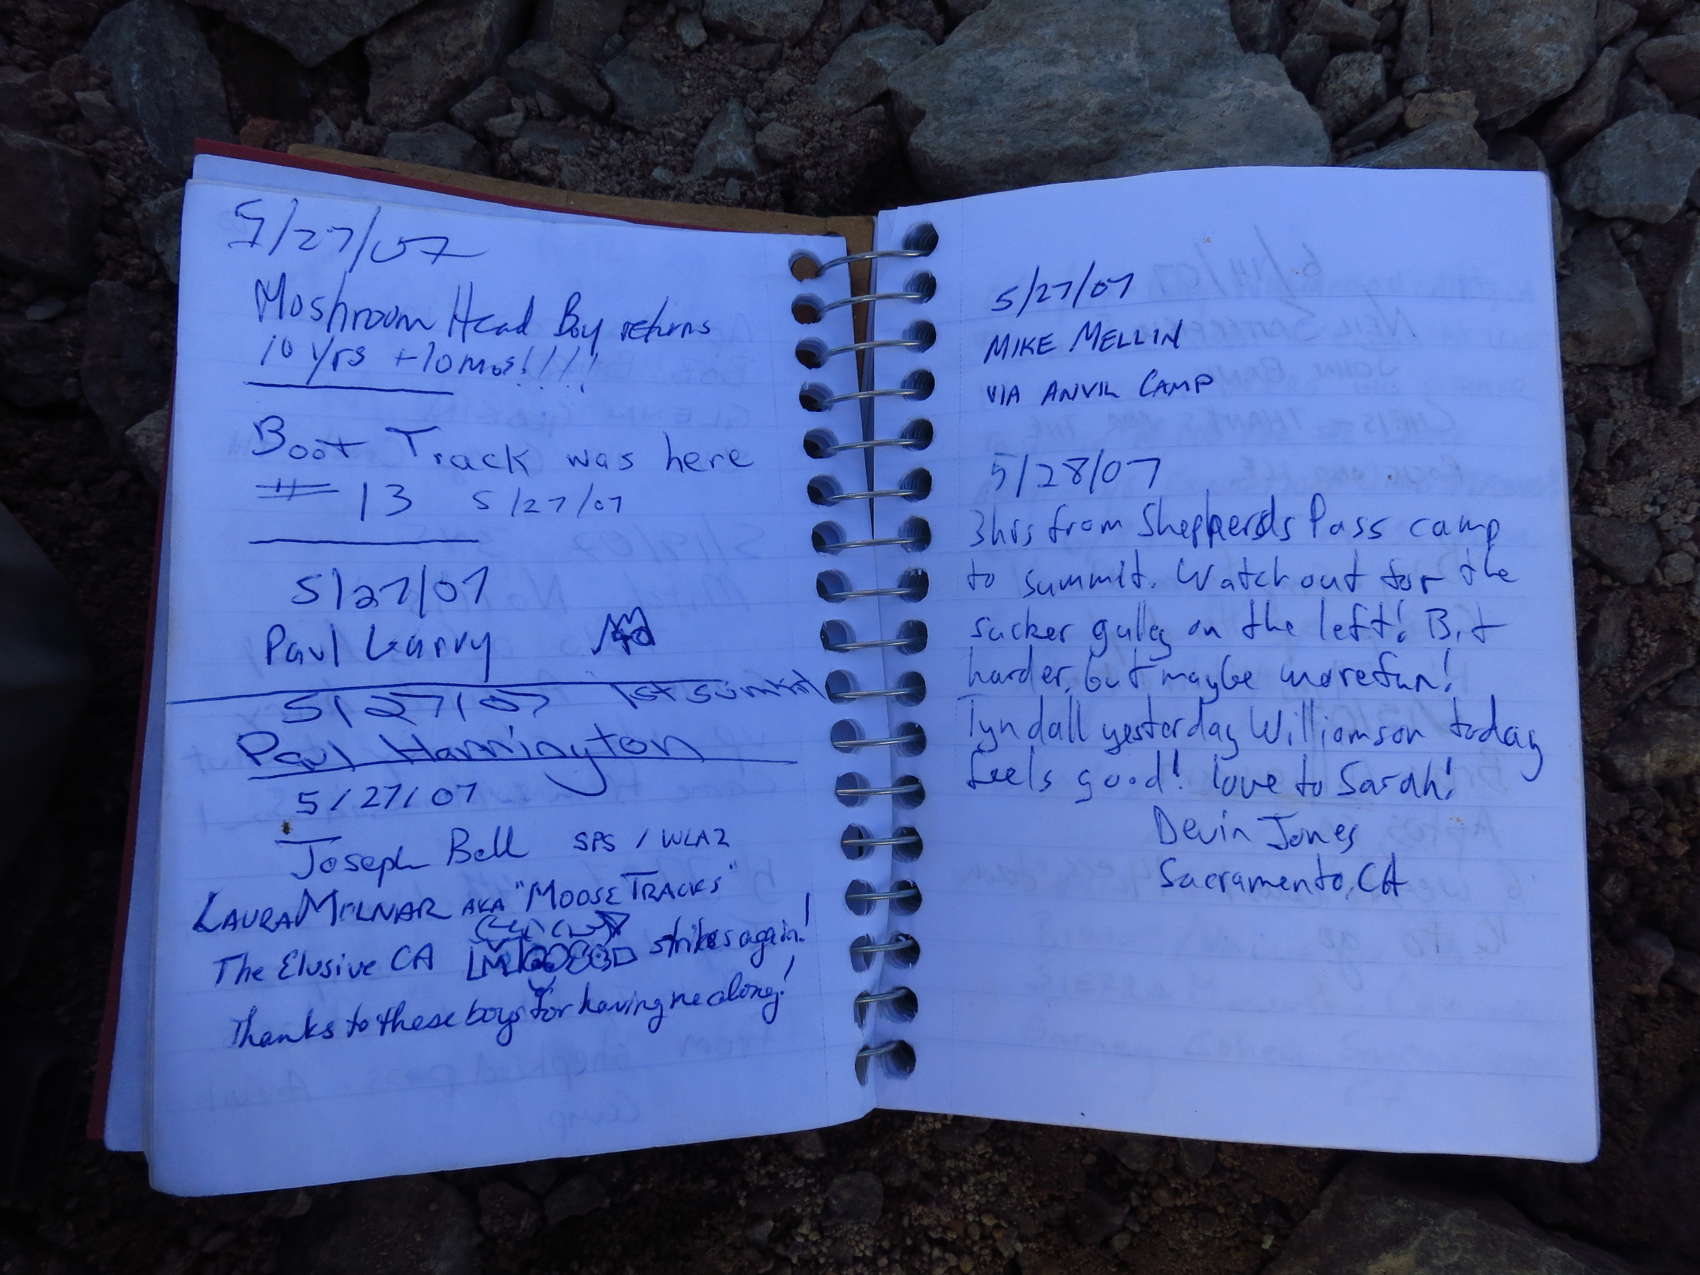 5/27/07
Moshroom Head Boy returns
10 yrs + 10 mos!!!!
Boot Track was here
# 13 5/27/07
5/27/07
Paul
5/27/07 1st summit
Paul Harrington
5/27/07
Joseph Bell SPS / WLAZ
LAURA MOLNAR AKA "MOOSE TRACKS"
THE ELUSIVE CA strikes again!
Thanks to these boys for having me along!
5/27/07
MIKE MELLIN
VIA ANVIL CAMP
5/28/07
3hrs from Shepherds Pass camp
to summit. Watch out for the
sucker gulley on the left! Bit
harder, but maybe more fun!
Tyndall yesterday Williamson today
feels good! love to Sarah!
Devin Jones
Sacramento, CA